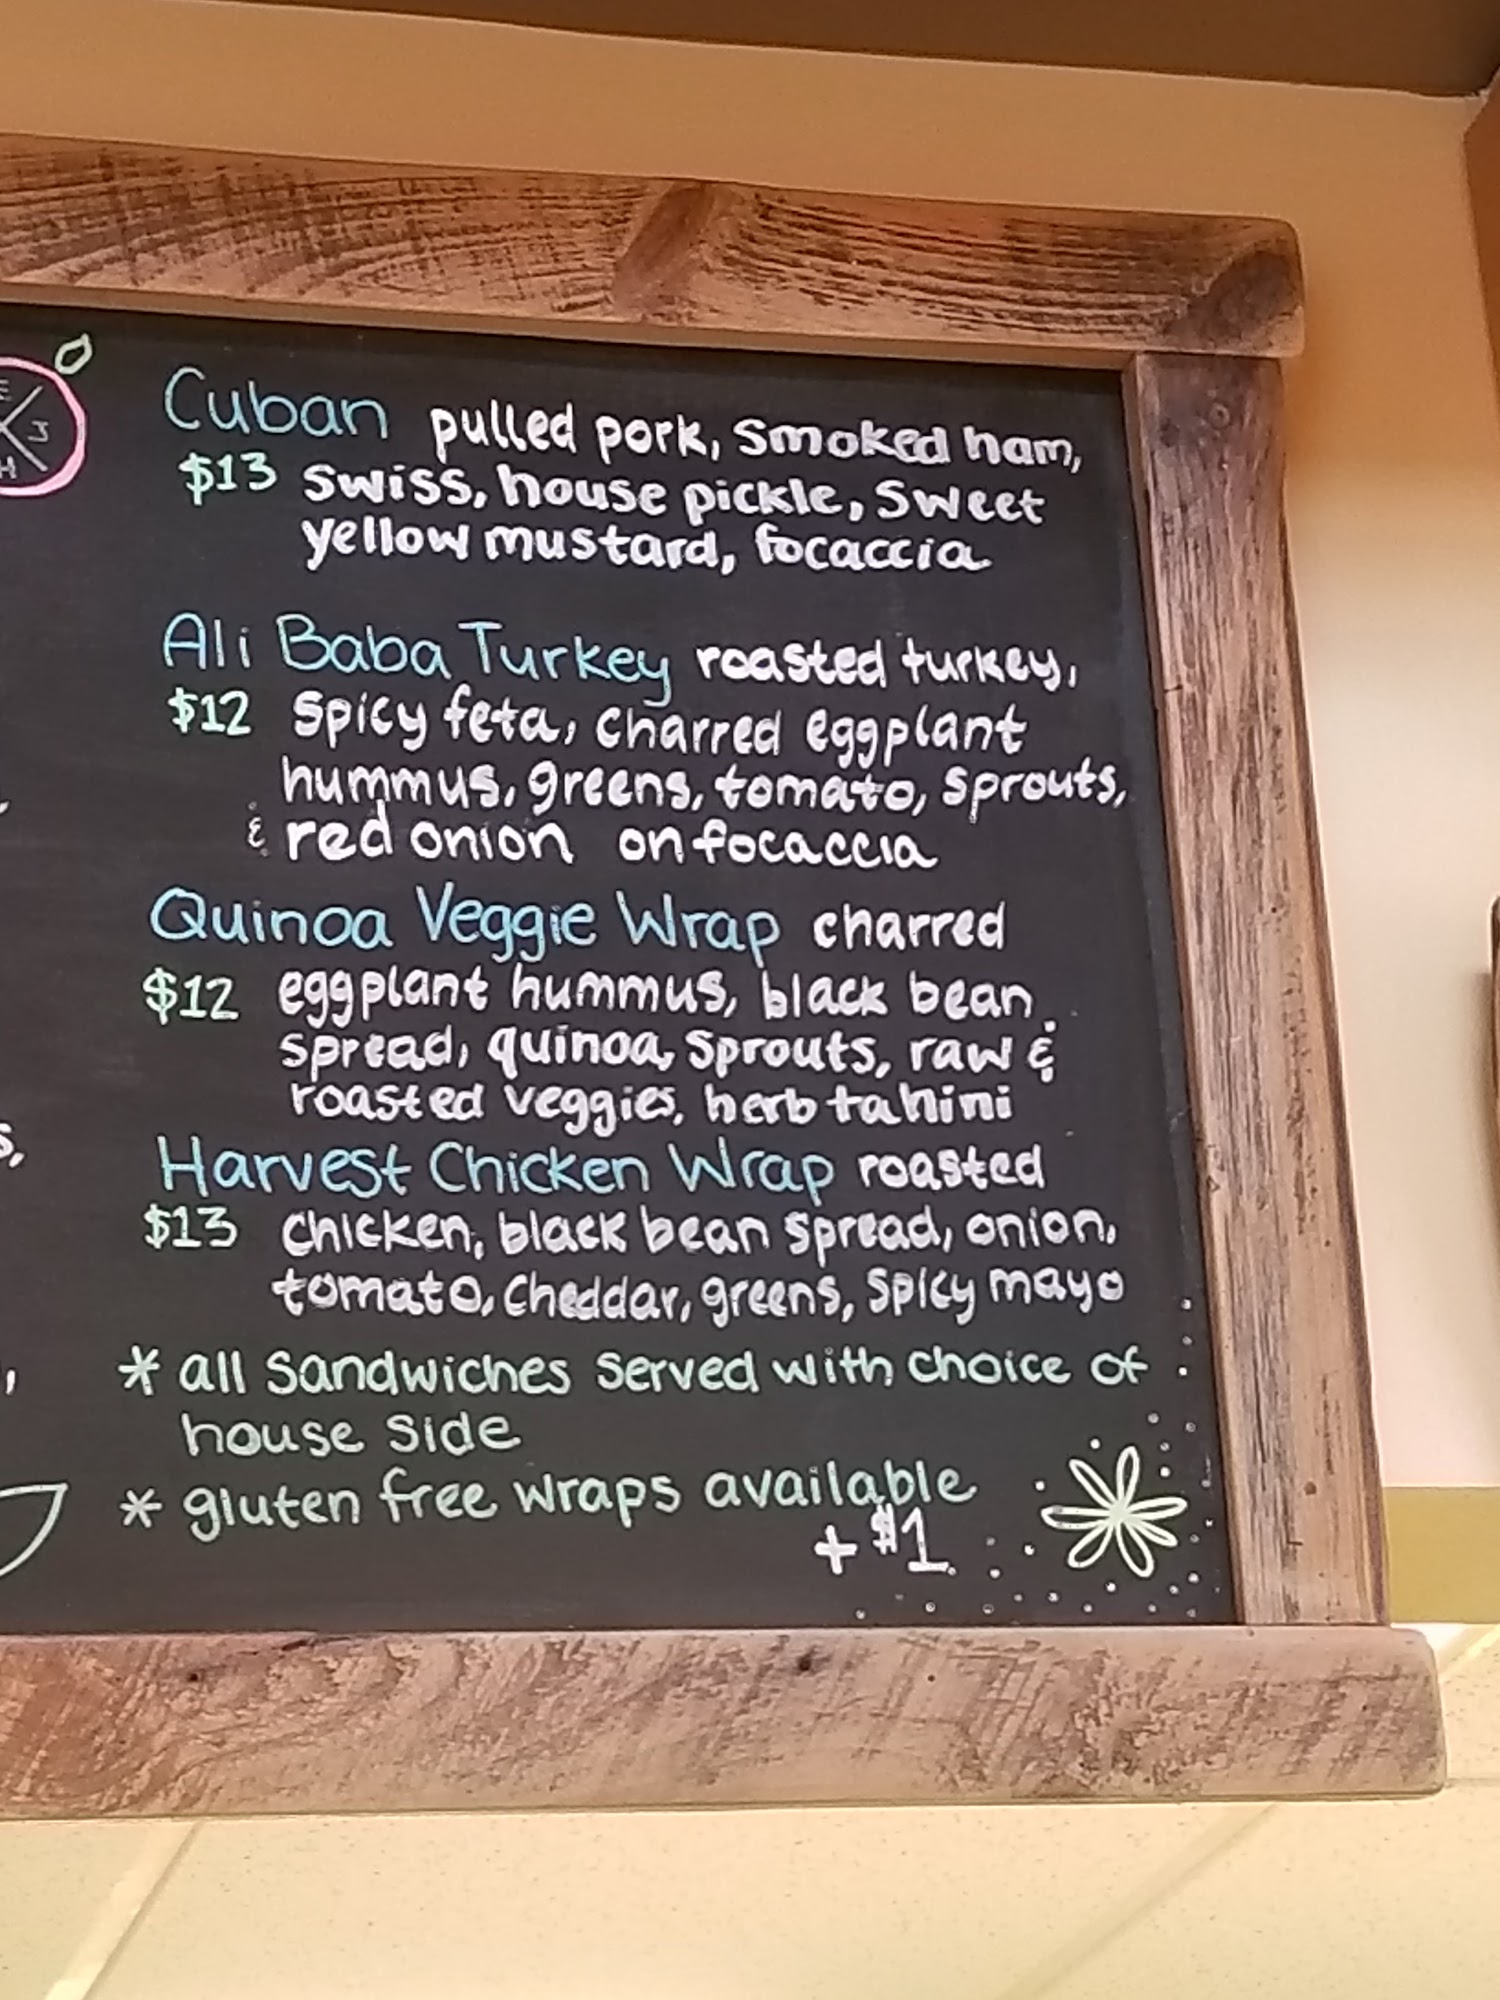 Cuban pulled pork, smoked ham,
$13 swiss, house pickle, sweet
yellow mustard, focaccia
Ali Baba Turkey roasted turkey,
$12 spicy feta, charred eggplant
hummus, greens, tomato, sprouts,
& red onion on focaccia
Quinoa Veggie Wrap charred
$12 eggplant hummus, black bean
spread, quinoa, sprouts, raw &
roasted veggies, herb tahini
Harvest Chicken Wrap roasted
$13 chicken, black bean spread, onion,
tomato, cheddar, greens, spicy mayo
* all sandwiches served with choice of
house side
* gluten free wraps available
+ $1